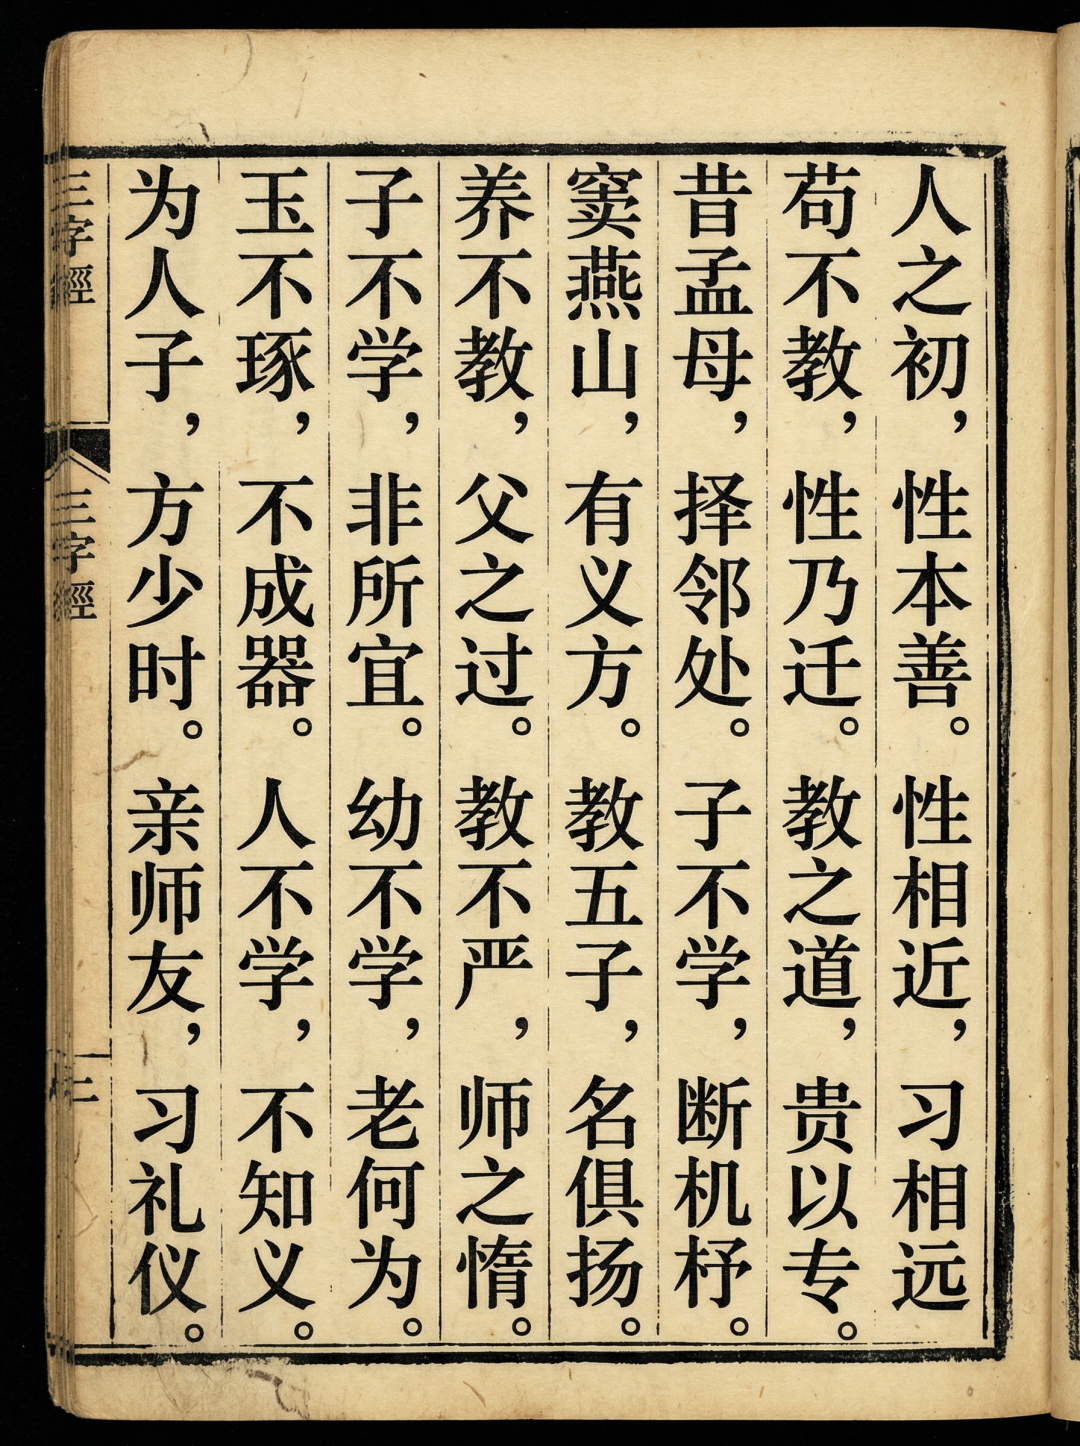 人之初，性本善。性相近，习相远
苟不教，性乃迁。教之道，贵以专。
昔孟母，择邻处。子不学，断机杼。
窦燕山，有义方。教五子，名俱扬。
养不教，父之过。教不严，师之惰。
子不学，非所宜。幼不学，老何为。
玉不琢，不成器。人不学，不知义。
为人子，方少时。亲师友，习礼仪。
三字經
三字經